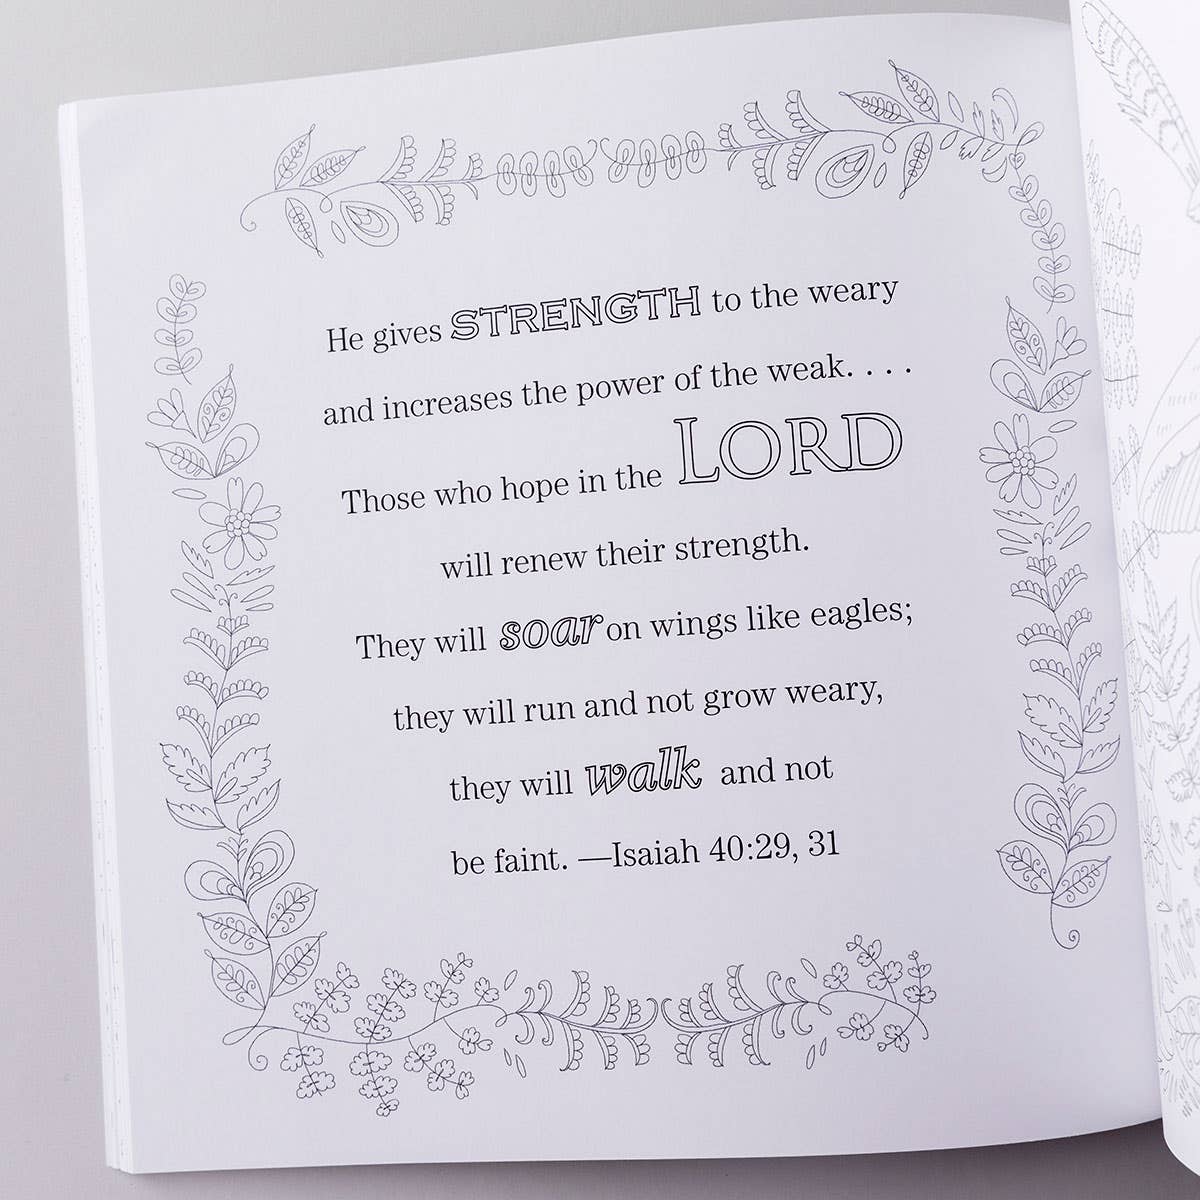 He gives STRENGTH to the weary
and increases the power of the weak. . . .
Those who hope in the LORD
will renew their strength.
They will soar on wings like eagles;
they will run and not grow weary,
they will walk and not
be faint. —Isaiah 40:29, 31